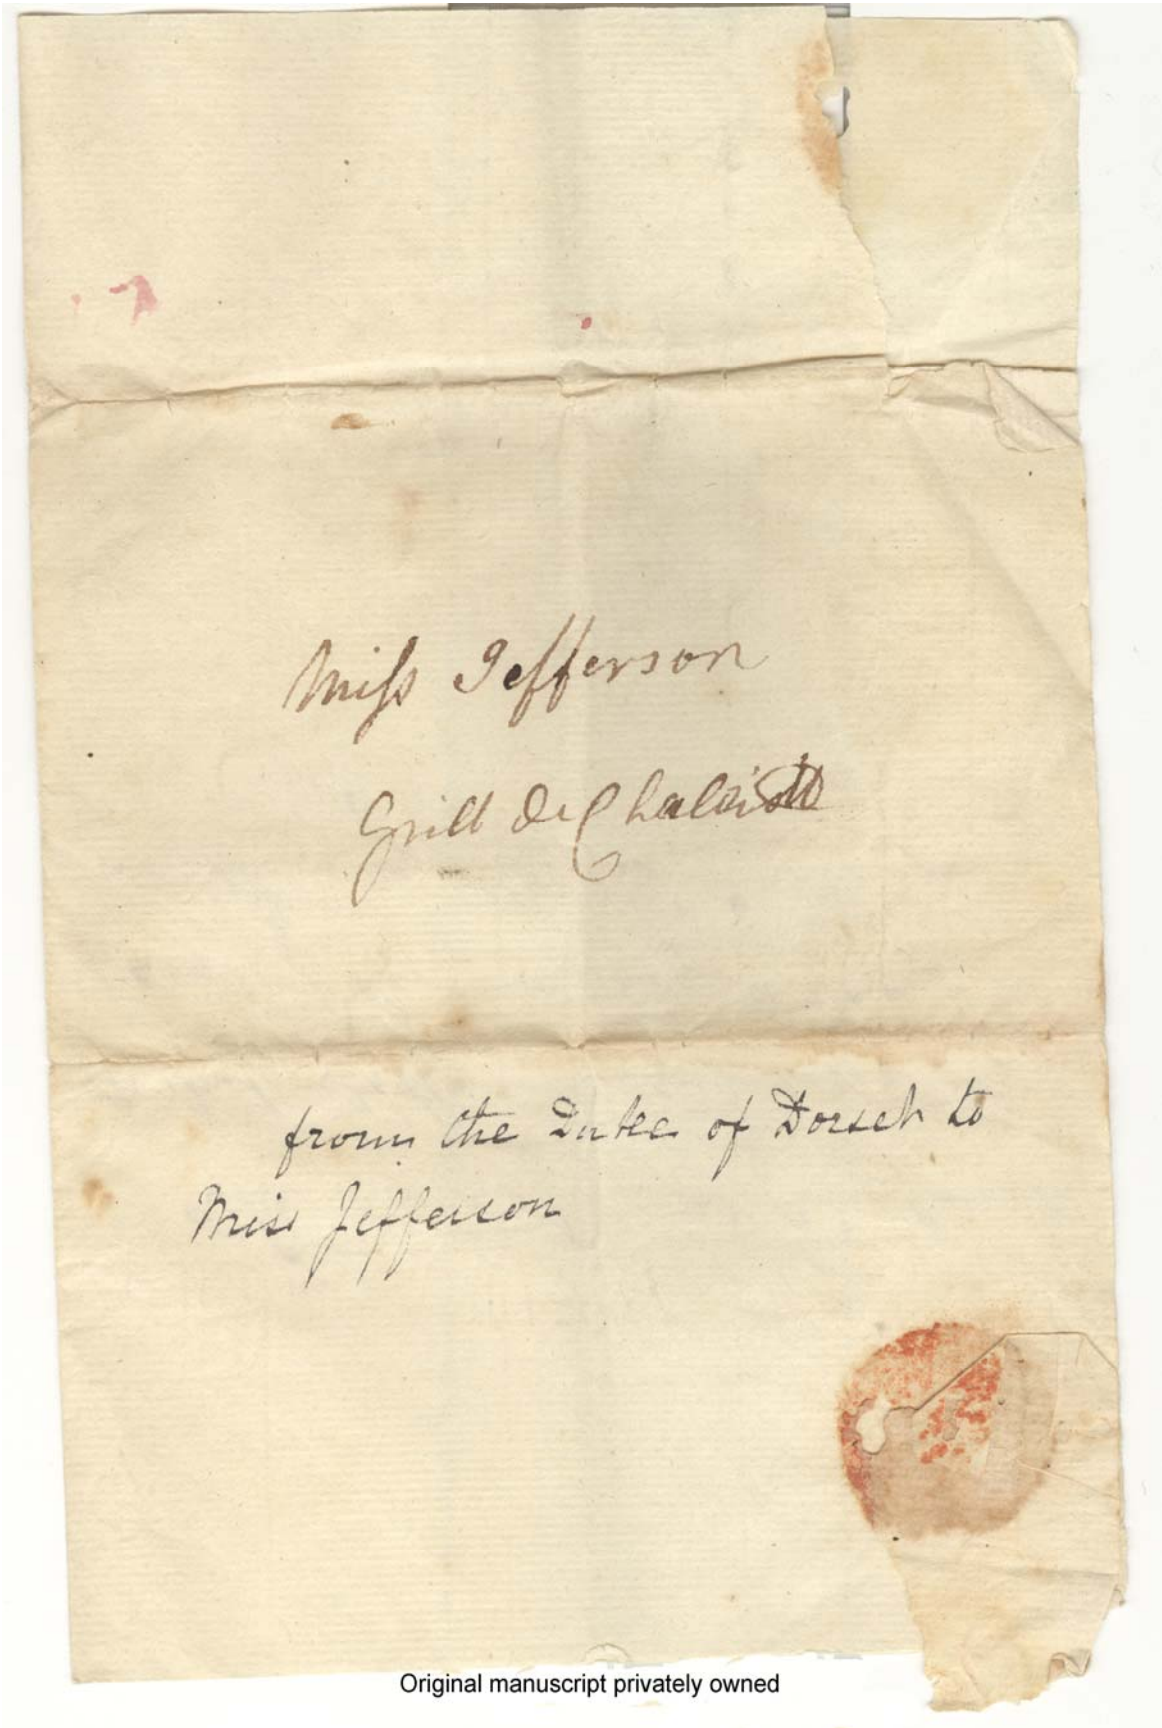 Miss Jefferson
Grill de Chalaiott
from the Duke of Dorset to
Miss Jefferson
Original manuscript privately owned